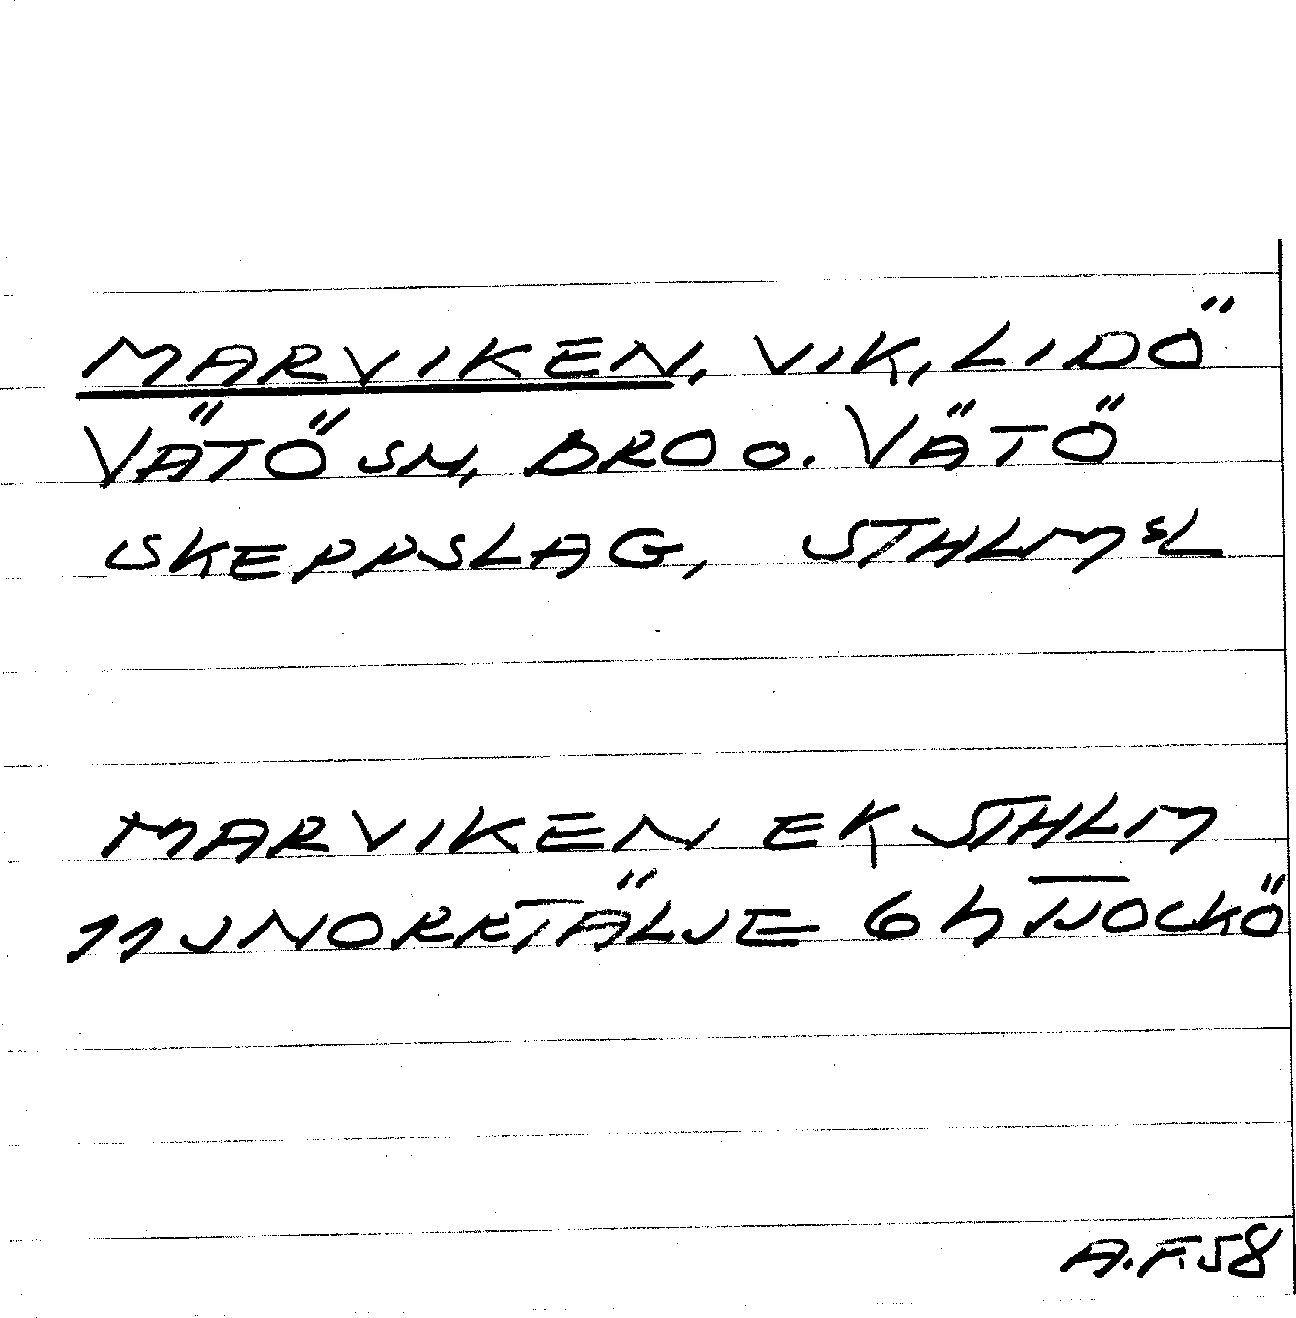 MARVIKEN, VIK, LIDÖ
VÄTÖ SN, BRO o. VÄTÖ
SKEPPSLAG, STHLMSL
MARVIKEN EK STHLM
11 J NORRTÄLJE 6 h TJOCKÖ
A.F. 58